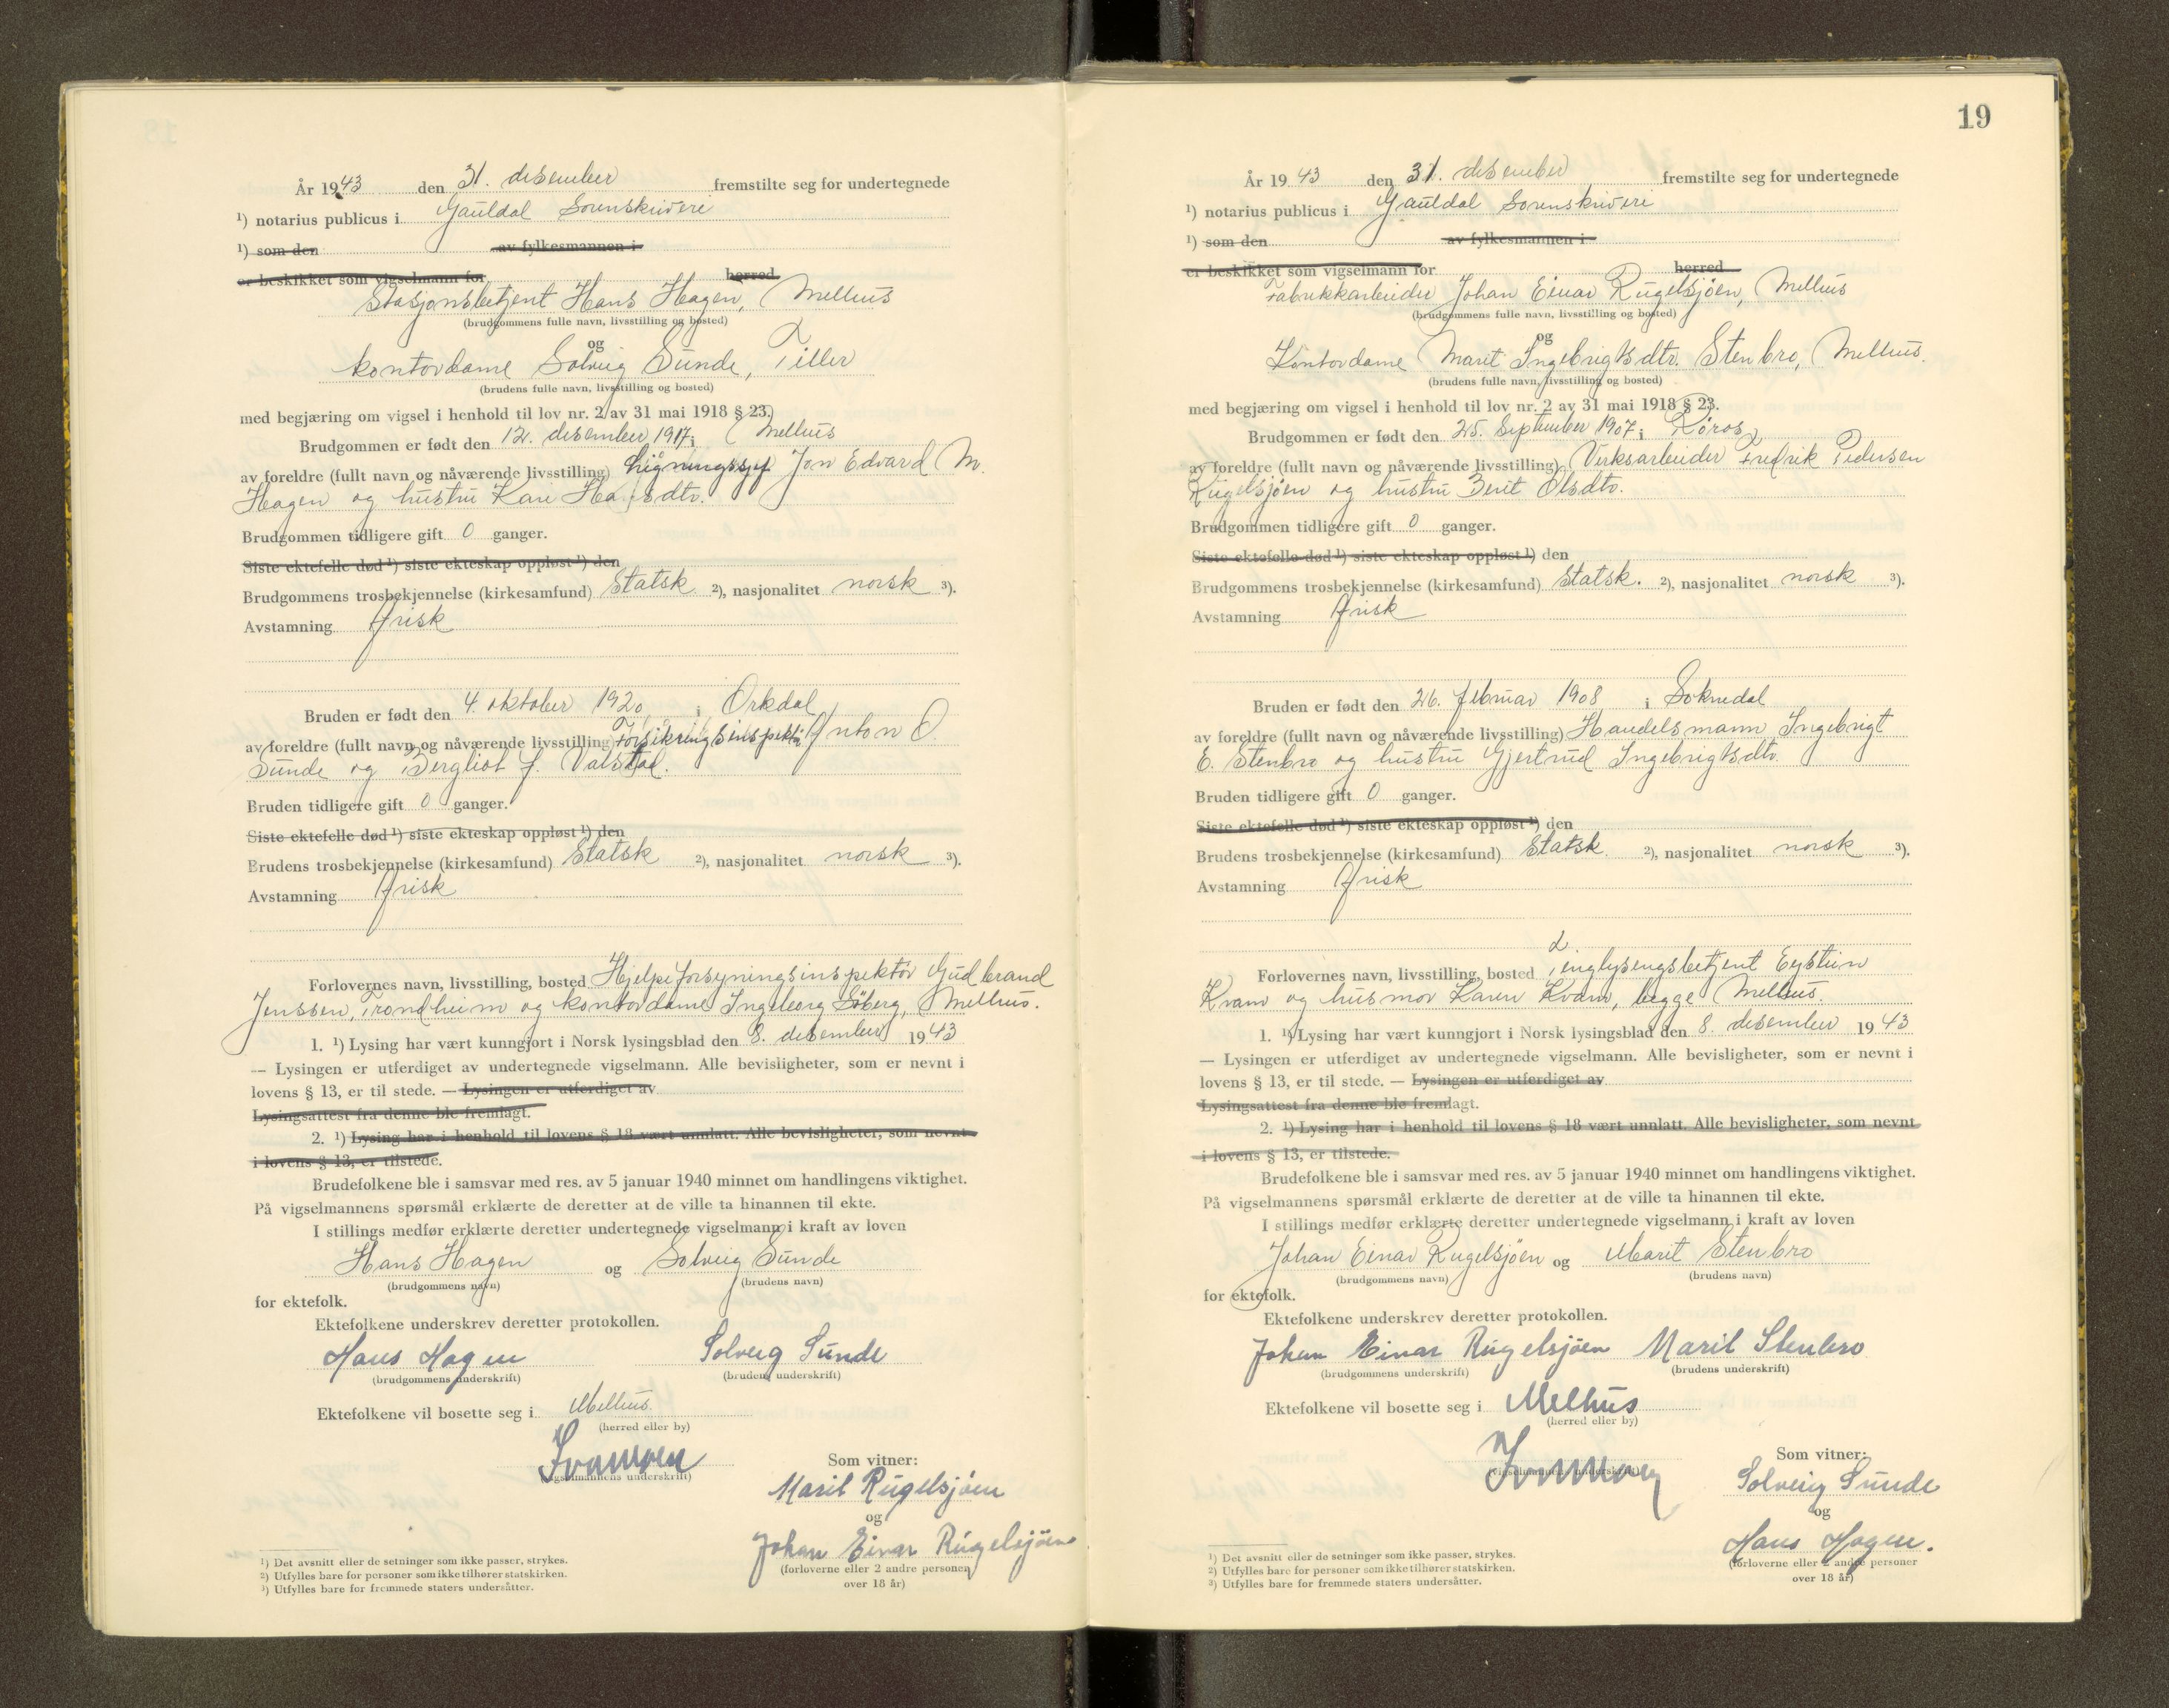 År 1943 den 31. desember fremstilte seg for undertegnede
¹) notarius publicus i Gauldal Sorenskriveri
¹) som den av fylkesmannen i
er beskikket som vigselmann for herred
Stasjonsbetjent Hans Hagen, Melhus
(brudgommens fulle navn, livsstilling og bosted)
og
kontordame Solveig Sunde, Tiller
(brudens fulle navn, livsstilling og bosted)
med begjæring om vigsel i henhold til lov nr. 2 av 31 mai 1918 § 23.
Brudgommen er født den 12. desember 1917 i Melhus
av foreldre (fullt navn og nåværende livsstilling) Ligningssjef Jon Edvard M.
Hagen og hustru Kari Hansdtr.
Brudgommen tidligere gift 0 ganger.
Siste ektefelle død ¹) siste ekteskap oppløst ¹) den
Brudgommens trosbekjennelse (kirkesamfund) Statsk. ²), nasjonalitet norsk ³).
Avstamning Arisk
Bruden er født den 4. oktober 1920 i Orkdal
av foreldre (fullt navn og nåværende livsstilling) Forsikringsinspektør Anton O.
Sunde og Bergliot f. Valstad.
Bruden tidligere gift 0 ganger.
Siste ektefelle død ¹) siste ekteskap oppløst ¹) den
Brudens trosbekjennelse (kirkesamfund) Statsk ²), nasjonalitet norsk ³).
Avstamning Arisk
Forlovernes navn, livsstilling, bosted Hjelpeforsyningsinspektør Gudbrand
Jenssen, Trondheim og kontordame Ingeborg Søberg, Melhus.
1. ¹) Lysing har vært kunngjort i Norsk lysingsblad den 8. desember 1943
— Lysingen er utferdiget av undertegnede vigselmann. Alle bevisligheter, som er nevnt i
lovens § 13, er til stede. — Lysingen er utferdiget av
Lysingsattest fra denne ble fremlagt.
2. ¹) Lysing har i henhold til lovens § 18 vært unnlatt. Alle bevisligheter, som nevnt
i lovens § 13, er tilstede.
Brudefolkene ble i samsvar med res. av 5 januar 1940 minnet om handlingens viktighet.
På vigselmannens spørsmål erklærte de deretter at de ville ta hinannen til ekte.
I stillings medfør erklærte deretter undertegnede vigselmann i kraft av loven
Hans Hagen og Solveig Sunde
(brudgommens navn) (brudens navn)
for ektefolk.
Ektefolkene underskrev deretter protokollen.
Hans Hagen Solveig Sunde
(brudgommens underskrift) (brudens underskrift)
Ektefolkene vil bosette seg i Melhus.
(herred eller by)
(vigselmannens underskrift)
Som vitner:
Marit Rugelsjøen
og
Johan Einar Rugelsjöen
(forloverne eller 2 andre personer
over 18 år)
¹) Det avsnitt eller de setninger som ikke passer, strykes.
²) Utfylles bare for personer som ikke tilhører statskirken.
³) Utfylles bare for fremmede staters undersåtter.
19
År 1943 den 31. desember fremstilte seg for undertegnede
¹) notarius publicus i Gauldal Sorenskriveri
¹) som den av fylkesmannen i
er beskikket som vigselmann for herred
Fabrikkarbeider Johan Einar Rugelsjøen, Melhus
(brudgommens fulle navn, livsstilling og bosted)
og
Kontordame Marit Ingebrigtsdtr. Stenbro, Melhus.
(brudens fulle navn, livsstilling og bosted)
med begjæring om vigsel i henhold til lov nr. 2 av 31 mai 1918 § 23.
Brudgommen er født den 25. September 1907 i Røros
av foreldre (fullt navn og nåværende livsstilling) Verksarbeider Fredrik Pedersen
Rugelsjøen og hustru Berit Olsdtr.
Brudgommen tidligere gift 0 ganger.
Siste ektefelle død ¹) siste ekteskap oppløst ¹) den
Brudgommens trosbekjennelse (kirkesamfund) Statsk. ²), nasjonalitet norsk ³).
Avstamning Arisk
Bruden er født den 26. februar 1908 i Soknedal
av foreldre (fullt navn og nåværende livsstilling) Handelsmann Ingebrigt
E. Stenbro og hustru Gjertrud Ingebrigtsdtr.
Bruden tidligere gift 0 ganger.
Siste ektefelle død ¹) siste ekteskap oppløst ¹) den
Brudens trosbekjennelse (kirkesamfund) Statsk. ²), nasjonalitet norsk ³).
Avstamning Arisk
Forlovernes navn, livsstilling, bosted Tinglysingsbetjent Eystein
Kvam og husmor Karen Kvam, begge Melhus.
1. ¹) Lysing har vært kunngjort i Norsk lysingsblad den 8. desember 1943
— Lysingen er utferdiget av undertegnede vigselmann. Alle bevisligheter, som er nevnt i
lovens § 13, er til stede. — Lysingen er utferdiget av
Lysingsattest fra denne ble fremlagt.
2. ¹) Lysing har i henhold til lovens § 18 vært unnlatt. Alle bevisligheter, som nevnt
i lovens § 13, er tilstede.
Brudefolkene ble i samsvar med res. av 5 januar 1940 minnet om handlingens viktighet.
På vigselmannens spørsmål erklærte de deretter at de ville ta hinannen til ekte.
I stillings medfør erklærte deretter undertegnede vigselmann i kraft av loven
Johan Einar Rugelsjöen og Marit Stenbro
(brudgommens navn) (brudens navn)
for ektefolk.
Ektefolkene underskrev deretter protokollen.
Johan Einar Rugelsjöen Marit Stenbro
(brudgommens underskrift) (brudens underskrift)
Ektefolkene vil bosette seg i Melhus
(herred eller by)
(vigselmannens underskrift)
Som vitner:
Solveig Sunde
og
Hans Hagen.
(forloverne eller 2 andre personer
over 18 år)
¹) Det avsnitt eller de setninger som ikke passer, strykes.
²) Utfylles bare for personer som ikke tilhører statskirken.
³) Utfylles bare for fremmede staters undersåtter.